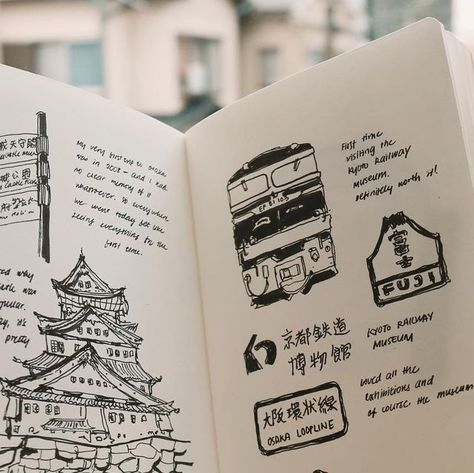 天守閣
公園
My very first trip to Osaka
was in 2015 - and I had
no clear memory of it
whatsoever. So everywhere
we went today felt like
seeing everything for the
first time.
First time
visiting the
Kyoto Railway
Museum.
Definitely worth it!
EF 81 103
富士
FUJI
京都鉄道
博物館
KYOTO RAILWAY
MUSEUM
大阪環状線
OSAKA LOOPLINE
Loved all the
exhibitions and
of course the museum